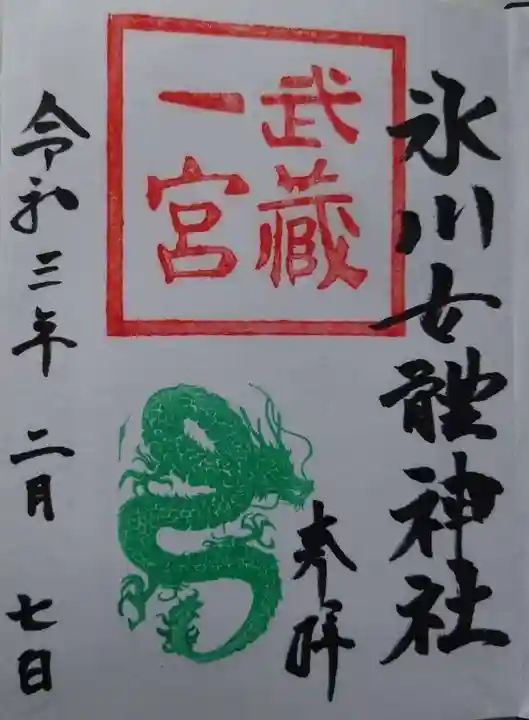 氷川女體神社
奉拝
武蔵
一宮
令和三年二月七日